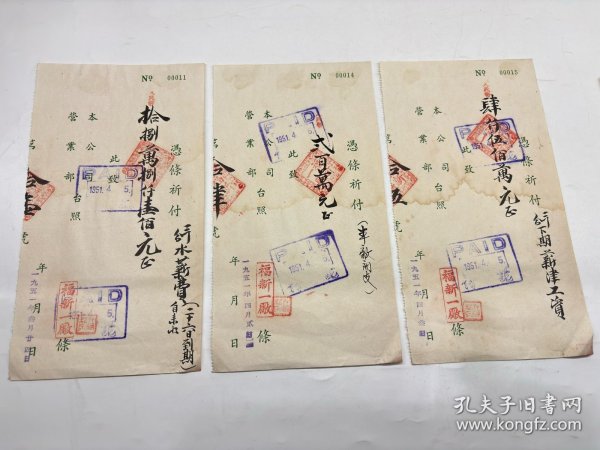 Nº 00011
憑條祈付
拾捌萬捌仟壹佰元正
此致
本公司台照
營業部
第拾壹號
年月日條
付水薪費(二十六日到期)
自來水
PAID
1951.4.5.
福新一廠
一九五一年
Nº 00014
憑條祈付
弍百萬元正
此致
本公司台照
營業部
第拾肆號
年月日條
PAID
1951.4.5.
PAID
1951.4.5.
福新一廠
一九五一年四月
Nº 00015
憑條祈付
肆仟伍佰萬元正
此致
本公司台照
營業部
第拾五號
年月日條
付下期薪津工資
PAID
1951.4.5.
PAID
1951.4.
福新一廠
一九五一年
孔夫子旧书网
www.kongfz.com